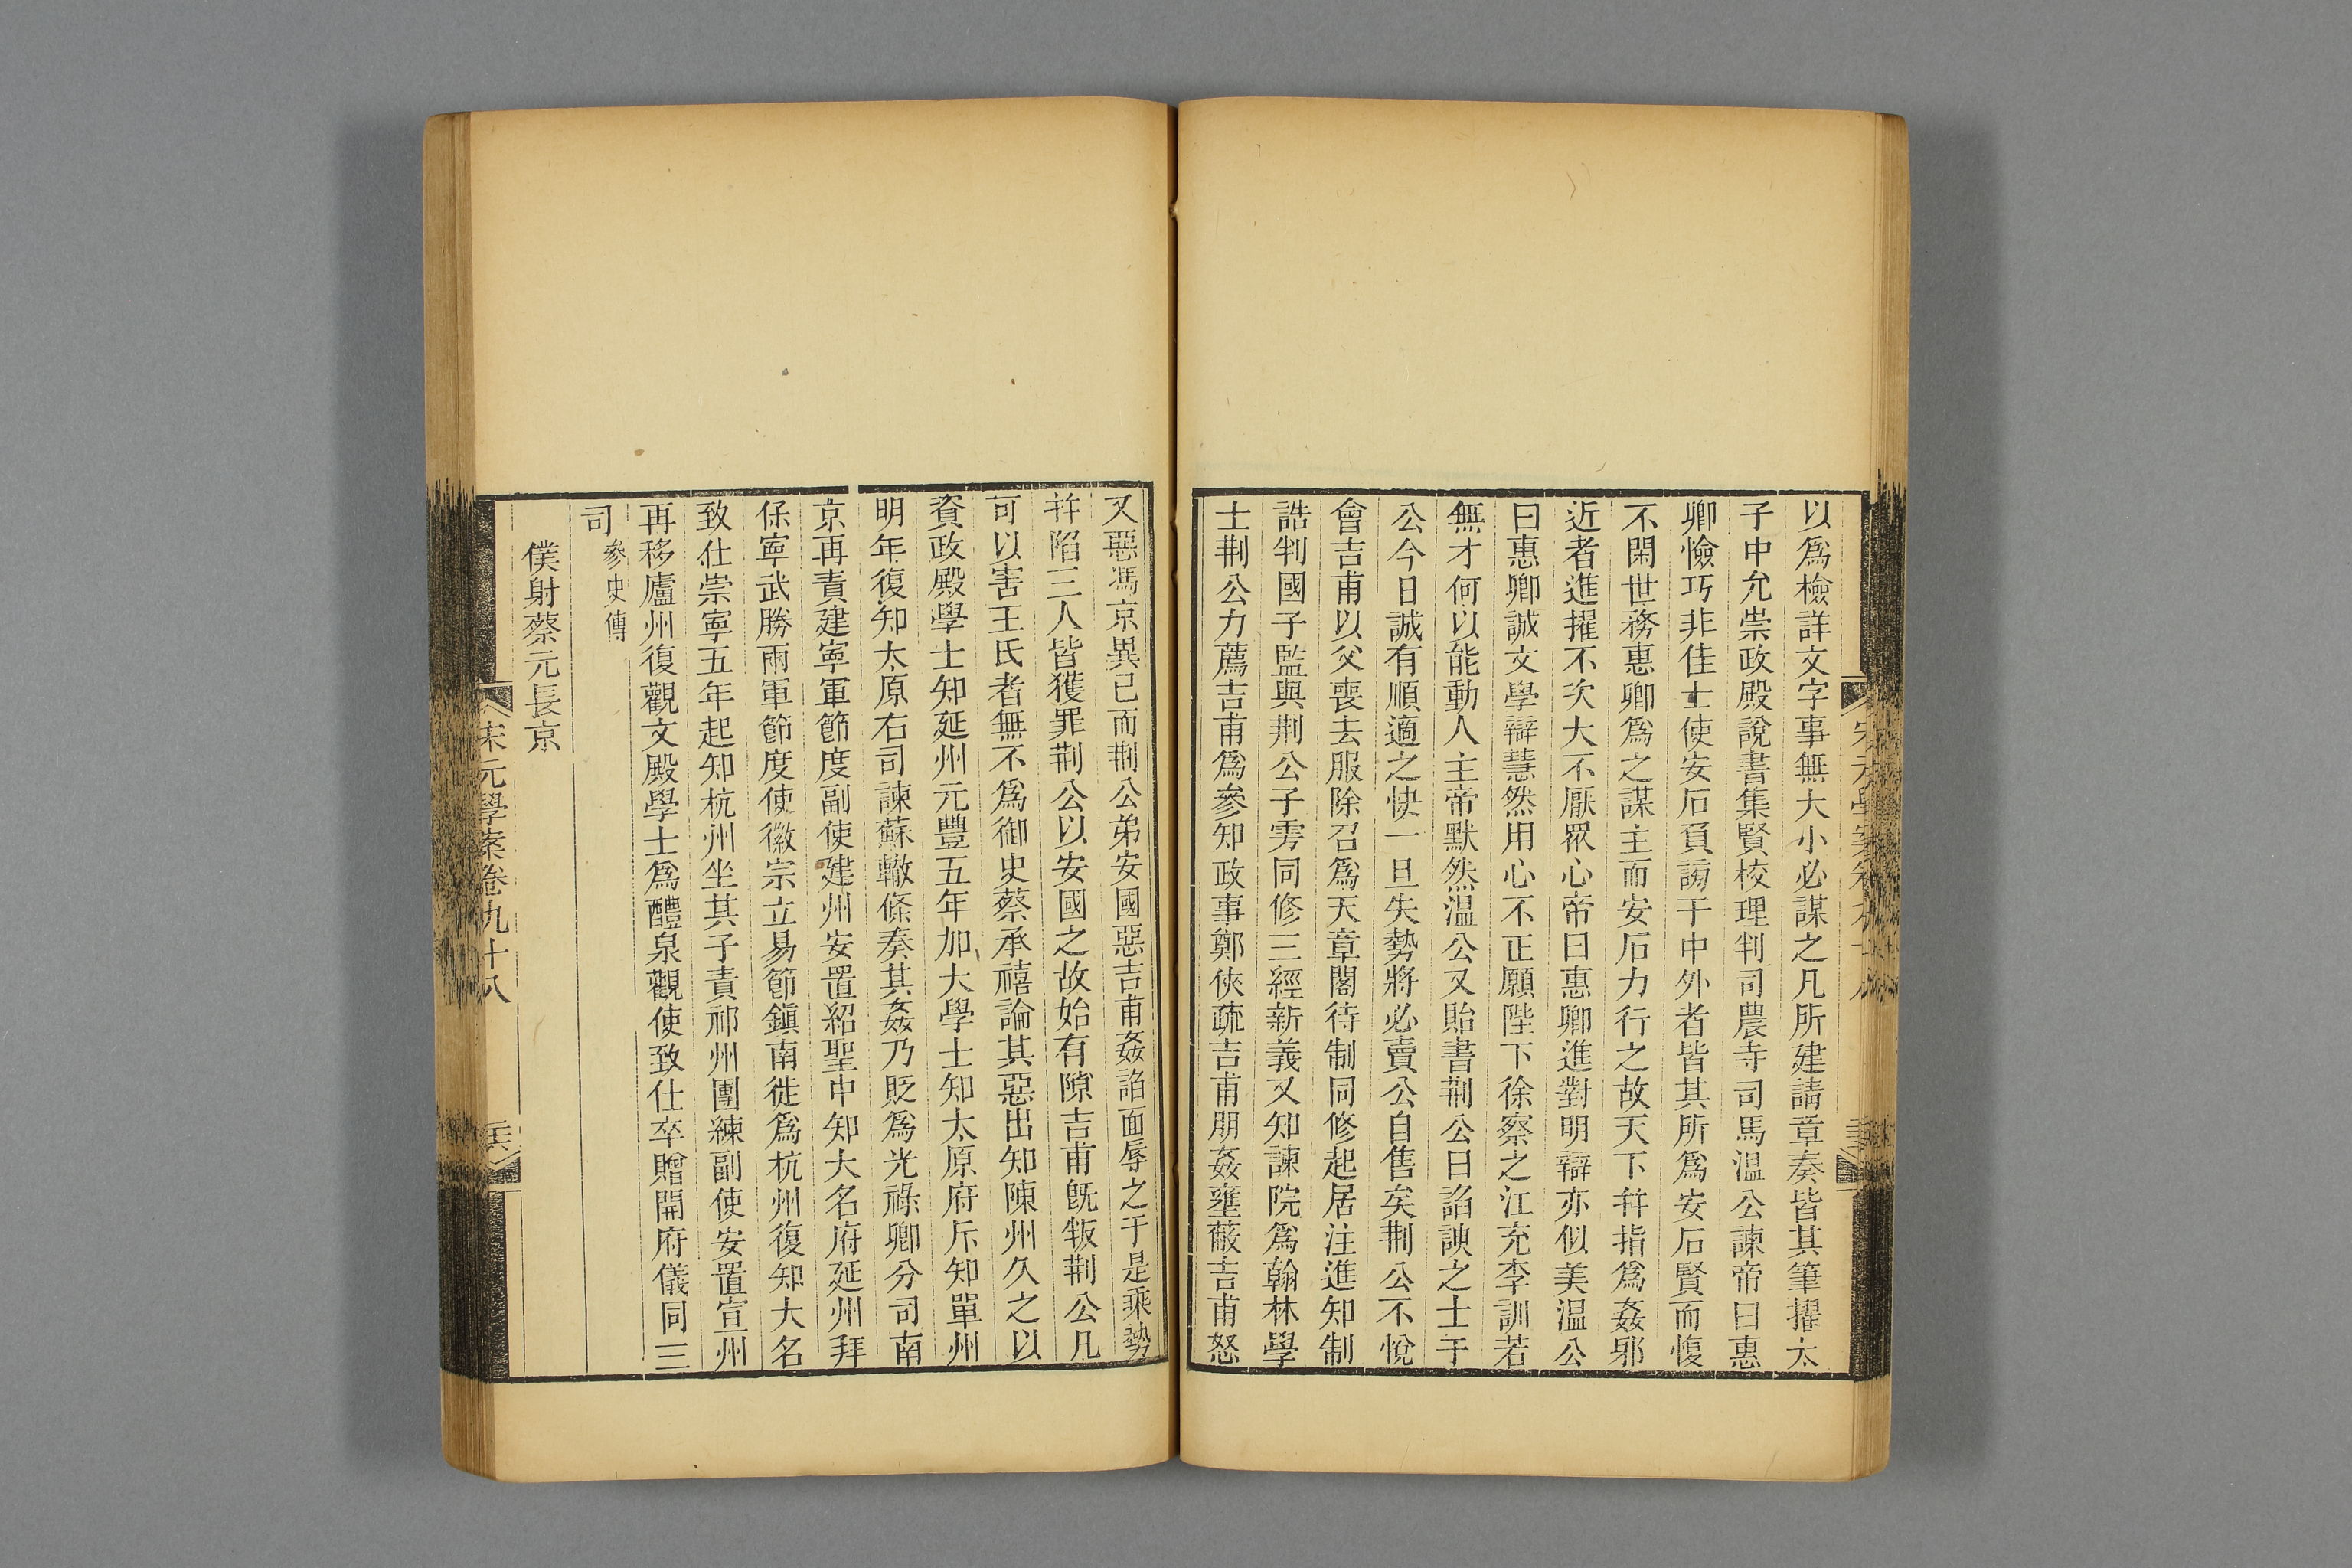 以爲檢詳文字事無大小必謀之凡所建請章奏皆其筆擢太
子中允崇政殿說書集賢校理判司農寺司馬溫公諫帝曰惠
卿憸巧非佳士使安石負謗于中外者皆其所爲安石賢而愎
不閑世務惠卿爲之謀主而安石力行之故天下并指爲姦邪
近者進擢不次大不厭眾心帝曰惠卿進對明辯亦似美溫公
曰惠卿誠文學辯慧然用心不正願陛下徐察之江充李訓若
無才何以能動人主帝默然溫公又貽書荆公曰諂諛之士于
公今日誠有順適之快一旦失勢將必賣公自售矣荆公不悅
會吉甫以父喪去服除召爲天章閣待制同修起居注進知制
誥判國子監與荆公子雱同修三經新義又知諫院爲翰林學
士荆公力薦吉甫爲參知政事鄭俠疏吉甫朋姦壅蔽吉甫怒
又惡馮京異已而荆公弟安國惡吉甫姦諂面辱之于是乘勢
并陷三人皆獲罪荆公以安國之故始有隙吉甫旣叛荆公凡
可以害王氏者無不爲御史蔡承禧論其惡出知陳州久之以
資政殿學士知延州元豐五年加大學士知太原府斥知單州
明年復知太原右司諫蘇轍條奏其姦乃貶爲光祿卿分司南
京再責建寧軍節度副使建州安置紹聖中知大名府延州拜
保寧武勝兩軍節度使徽宗立易節鎭南徙爲杭州復知大名
致仕崇寧五年起知杭州坐其子責祁州團練副使安置宣州
再移廬州復觀文殿學士爲醴泉觀使致仕卒贈開府儀同三
司參史傳
僕射蔡元長京
宋元學案卷九十八